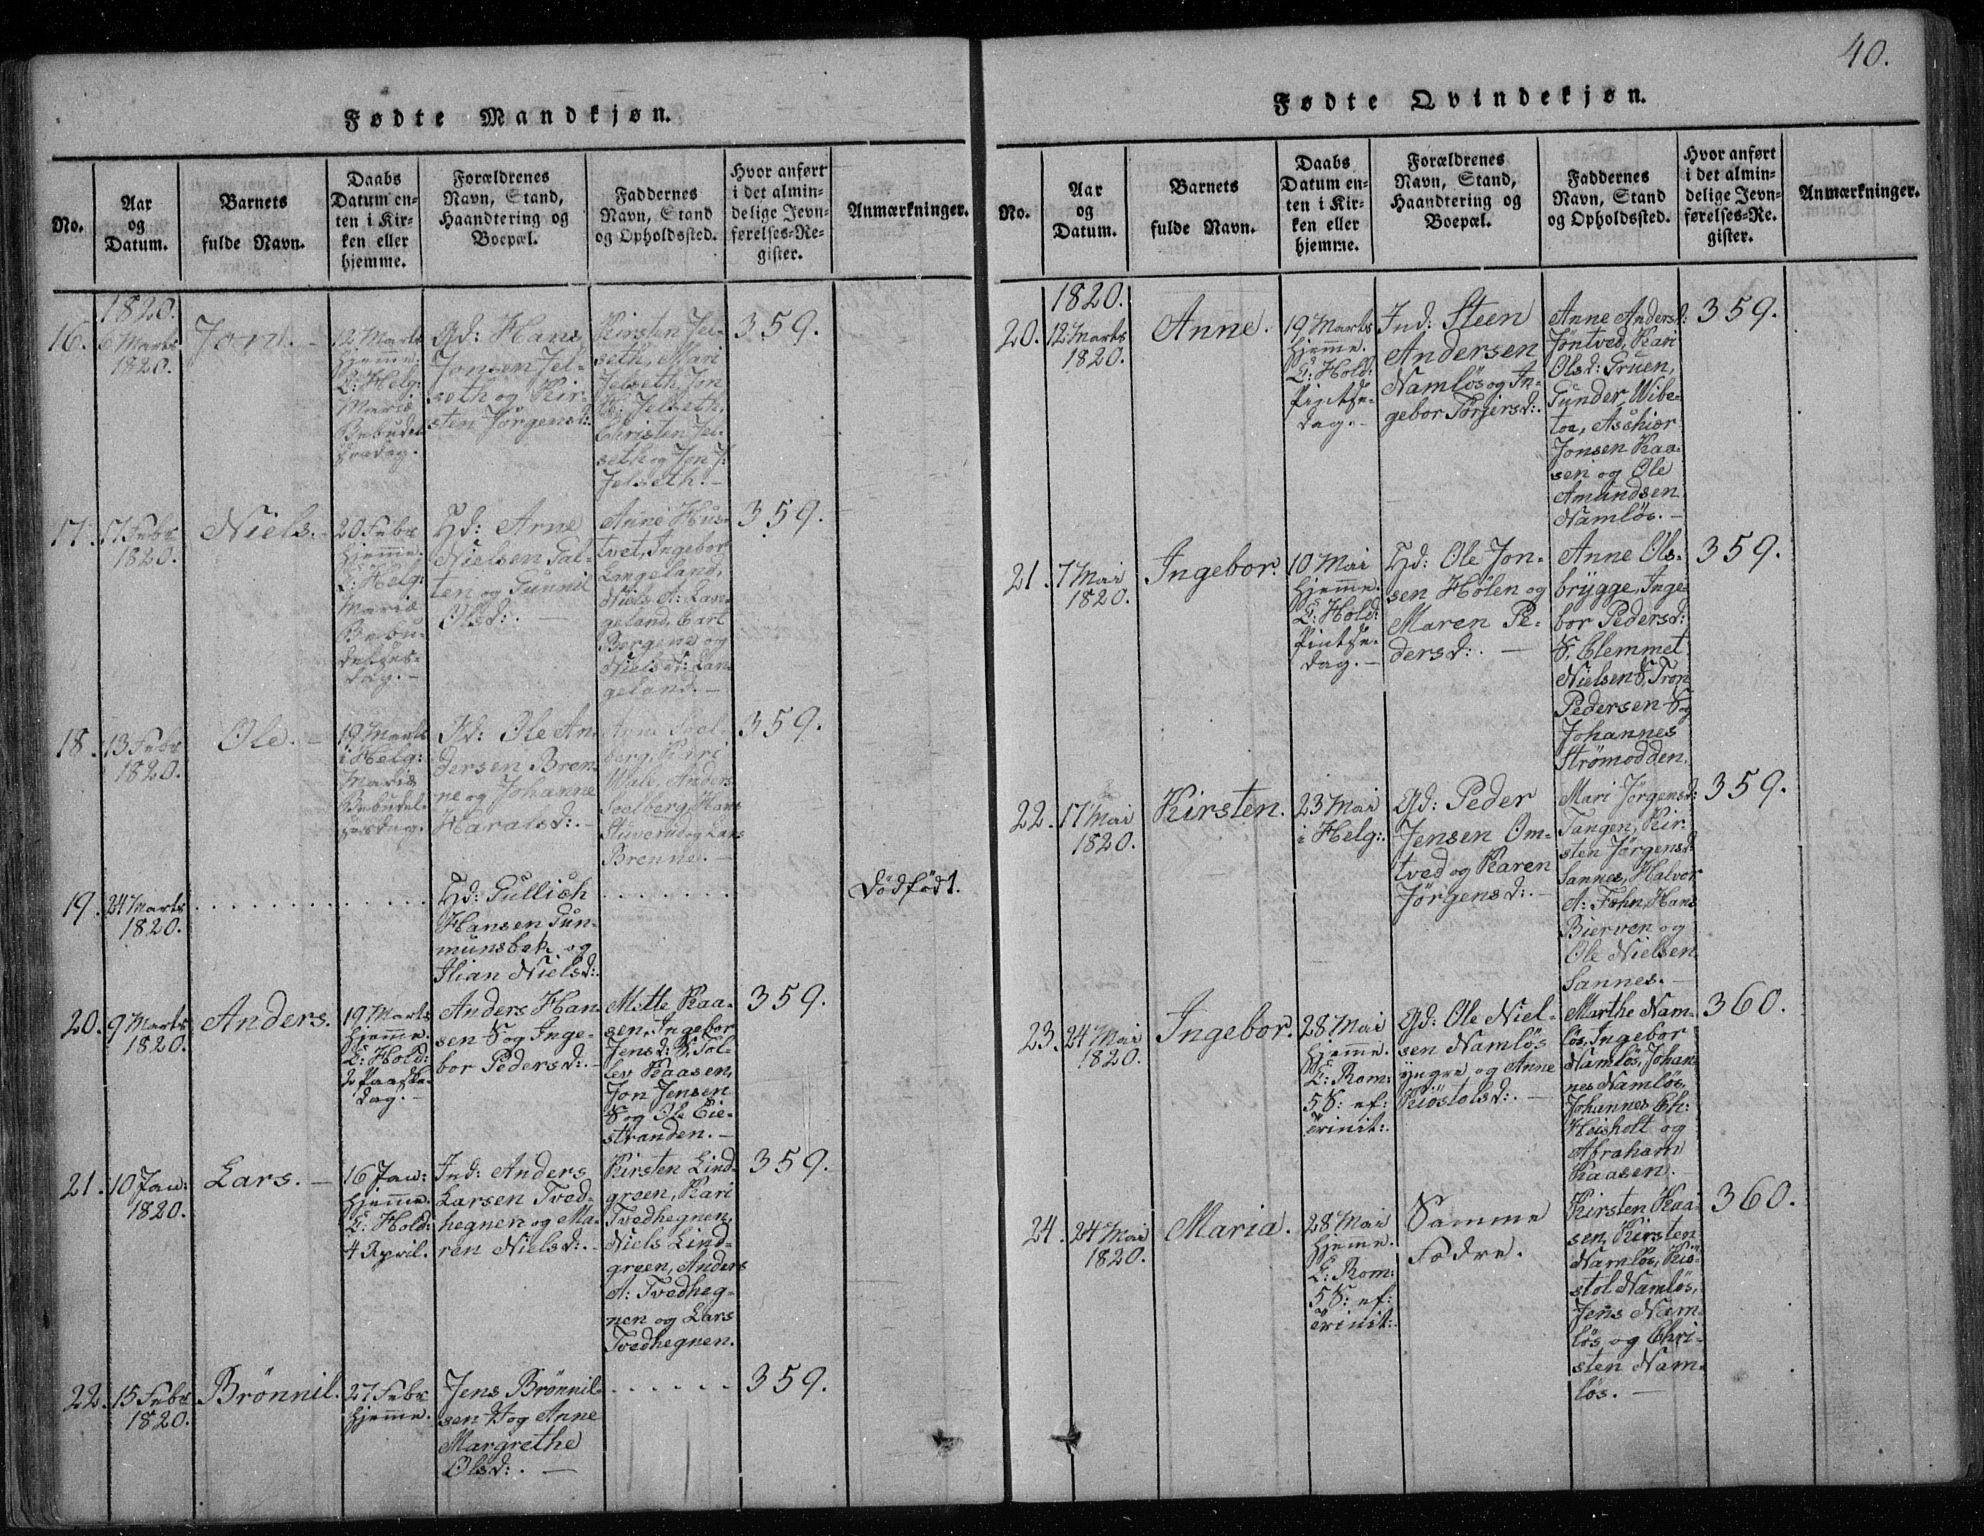 40.
Fødte Mandkjøn.
No.
Aar
og
Datum.
Barnets
fulde Navn.
Daabs
Datum en-
ten i Kir-
ken eller
hjemme.
Forældrenes
Navn, Stand,
Haandtering og
Boepæl.
Faddernes
Navn, Stand
og Opholdssted.
Hvor anført
i det almin-
delige Jevn-
førelses-Re-
gister.
Anmærkninger.
1820.
16.
6 Marts
1820.
Jon. -
12 Marts
hjemme.
E: Helg:
Mariæ
Bebudel-
sesdag.
Gd: Hans
Jonsen Jel-
seth og Kir-
sten Jörgensd:.
Kirsten Jel-
seth, Mari
Jelseth, Jon
H: Jelseth,
Christen Jel-
seth og Jon J:
Jelseth. -
359.
17.
17 Febr
1820.
Niels. -
20 Febr
hjemme.
E: Helg:
Mariæ
Bebu-
delses-
dag. -
Hd: Arne
Nielsen Tal-
ten og Gunnil
Olsd:. -
Anne Hus-
tvet, Ingebor
Langeland,
Niels A: Lan-
geland, Carl
Bergene og
Niels N: Lan-
geland. -
359.
18.
13 Febr
1820.
Ole. -
19 Marts
i Helg:
Mariæ
Bebudel-
sesdag.
Gd: Ole An-
dersen Bren-
ne og Johanne
Haralsd:. -
Soel-
berg, Kari
Anders
Soelberg, Hans
Stuverud og Lars
Brenne. -
359.
19.
24 Marts
1820.
Hd: Gullich
Hansen Gun-
munsbek og
Ilian Nielsd:.
Dödfödt.
20.
9 Marts
1820.
Anders.
19 Marts
hjemme.
E: Hold:
2 Paaske-
dag. -
Anders Han-
sen S og Inge-
bor Pedersd:. -
Mette Kaa-
sen, Ingebor
Jensd: S, Tol-
lev Kaasen,
Jon Jensen
S og Ole Eie-
stranden. -
359.
21.
10 Jan:
1820.
Lars. -
16 Jan:
hjemme.
E: Hold:
4 April.
Ind: Anders
Larsen Tved-
hegnen og Ma-
ren Nielsd:. -
Kirsten Lind-
green, Kari
Tvedhegnen,
Niels Lind-
green, Anders
A: Tvedheg-
nen og Lars
Tvedhegnen.
359.
22.
15 Febr
1820.
Brönnil.
27 Febr
hjemme.
Jens Brönnil-
sen H og Anne
Margrethe
Olsd:. -
359.
Fødte Qvindekjøn.
No.
Aar
og
Datum.
Barnets
fulde Navn.
Daabs
Datum en-
ten i Kir-
ken eller
hjemme.
Forældrenes
Navn, Stand,
Haandtering og
Boepæl.
Faddernes
Navn, Stand
og Opholdssted.
Hvor anført
i det almin-
delige Jevn-
førelses-Re-
gister.
Anmærkninger.
1820.
20.
12 Marts
1820.
Anne.
19 Marts
hjemme.
E: Hold:
Pintse-
dag. -
Ind: Steen
Andersen
Namlös og In-
gebor Torgersd:.
Anne Andersd:
Jöntved, Kari
Olsd: Gruen,
Gunder Wibe-
toe, Aschier
Jonsen Kaa-
sen og Ole
Amundsen
Namlös. -
359.
21.
7 Mai
1820.
Ingebor.
10 Mai
hjemme.
E: Hold:
Pintse-
dag. -
Hd: Ole Jon-
sen Hölen og
Maren Pe-
dersd:. -
Anne Ols-
brygge, Inge-
bor Pedersd:
S, Clemmet
Nielsen S, Tron
Pedersen S og
Johannes
Strømodden.
359.
22.
17 Mai
1820.
Kirsten.
23 Mai
i Helg:.
Gd: Peder
Jensen Om-
tved og Karen
Jörgensd:. -
Mari Jörgensd:
Tangen, Kir-
sten Jörgensd:
Sannes, Halvor
A: Fæhn, Hans
Bierven og
Ole Nielsen
Sannes. -
359.
23.
24 Mai
1820.
Ingebor.
28 Mai
hjemme.
E: Rom:
5 S: ef:
Trinit:.
Gd: Ole Niel-
sen Namlös
yngre og Anne
Kiöstolsd:. -
Marthe Nam-
lös, Ingebor
Namlös, Johan-
nes Namlös,
Johannes Ch:
Heisholt og
Abraham
Kaasen.
360.
24.
24 Mai
1820.
Maria.
28 Mai
hjemme.
E: Rom:
5 S: ef:
Trinit:.
Samme
Fædre.
Kirsten Kaa-
sen, Kirsten
Namlös, Kiö-
stol Namlös,
Jens Nam-
lös og Chri-
sten Nam-
lös. -
360.